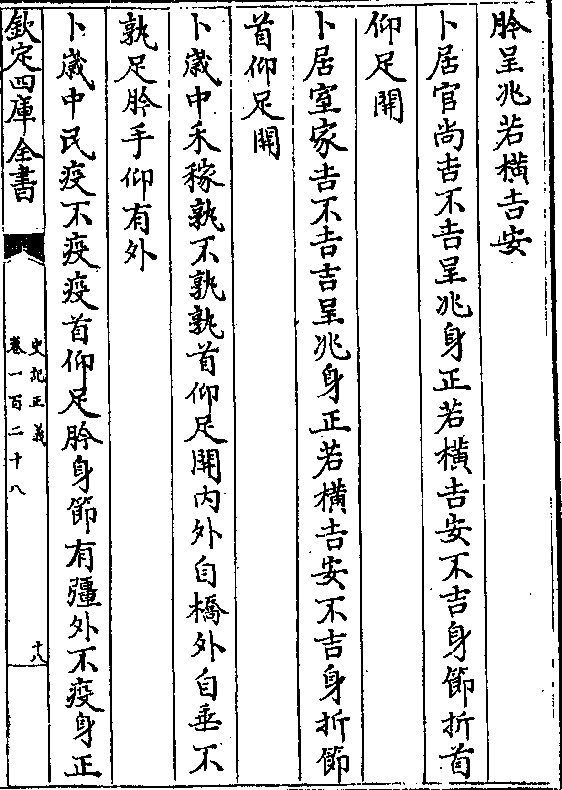 肣呈兆若橫吉安
卜居官尚吉不吉呈兆身正若橫吉安不吉身節折首
仰足開
卜居室家吉不吉吉呈兆身正若橫吉安不吉身折節
首仰足開
卜歲中禾稼孰不孰孰首仰足開内外自橋外自垂不
孰足肣手仰有外
卜歲中民疫不疫疫首仰足肣身節有彊外不疫身正
欽定四庫全書
史記正義
卷一百二十八
十八